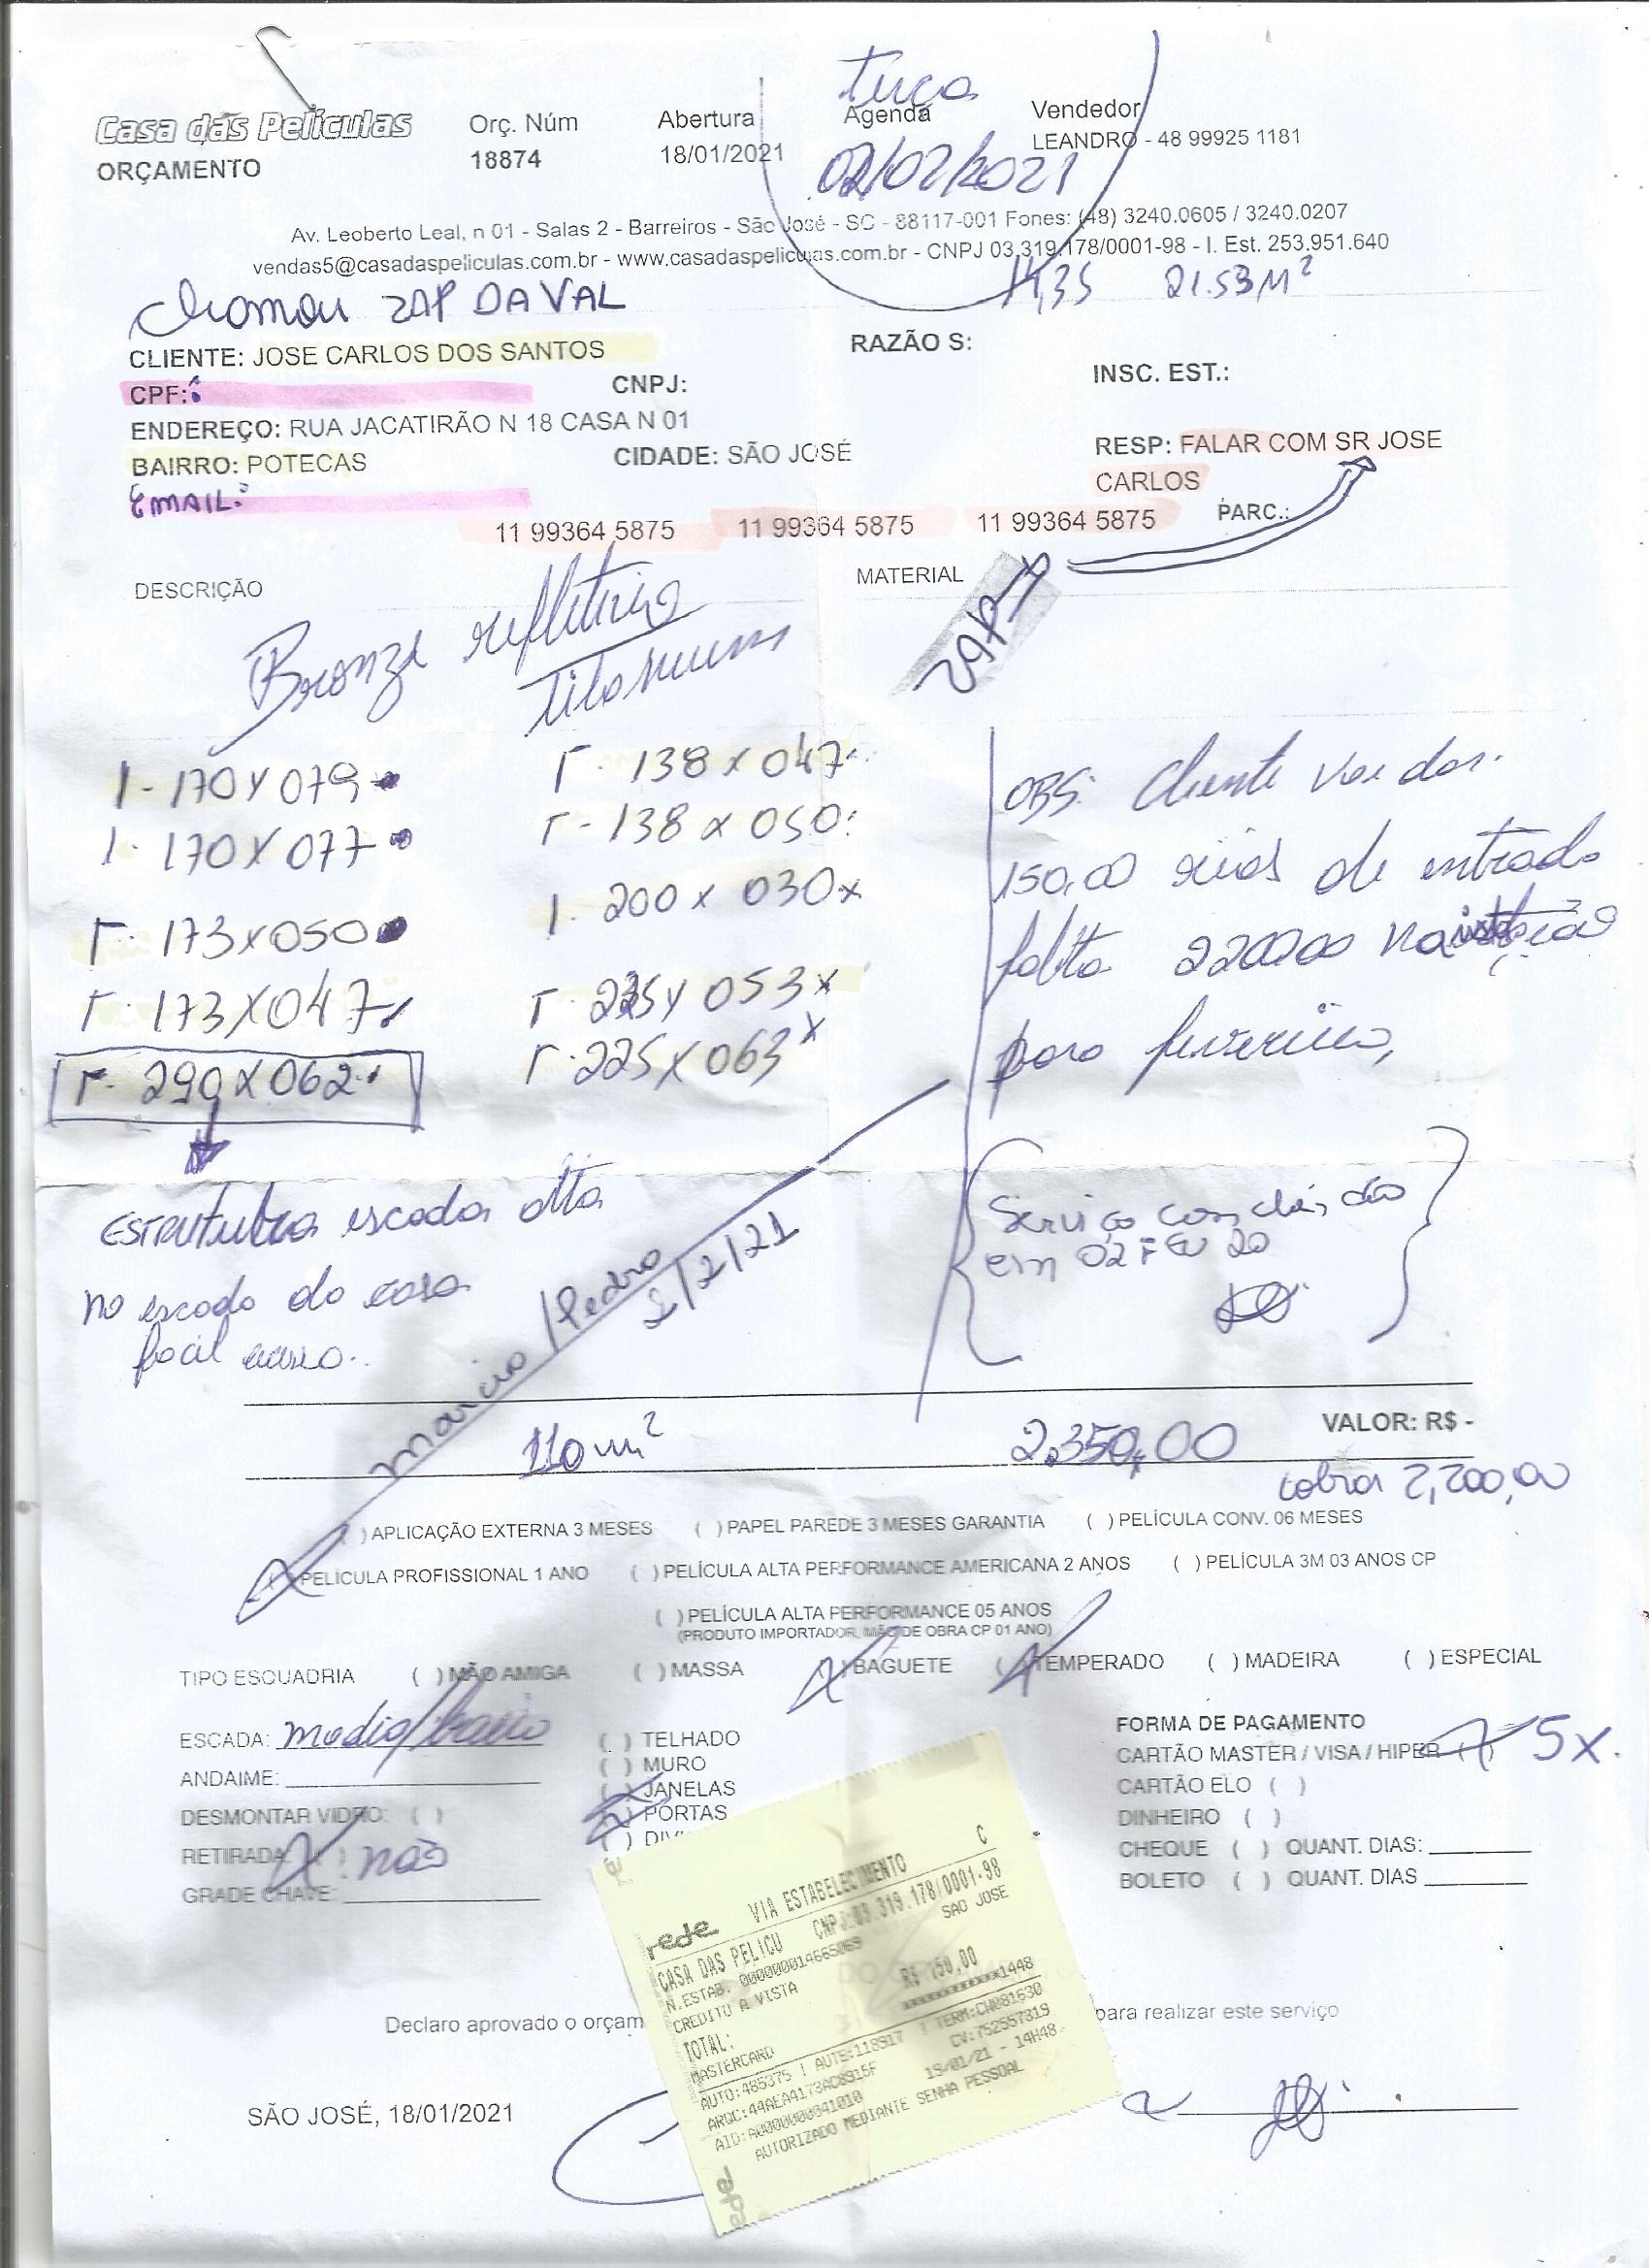 terça
Casa das Películas
ORÇAMENTO
Orç. Núm
18874
Abertura
18/01/2021
Agenda
02/02/2021
Vendedor
LEANDRO - 48 99925 1181
Av. Leoberto Leal, n 01 - Salas 2 - Barreiros - São José - SC - 88117-001 Fones: (48) 3240.0605 / 3240.0207
vendas5@casadaspeliculas.com.br - www.casadaspeliculas.com.br - CNPJ 03.319.178/0001-98 - I. Est. 253.951.640
21.53 M²
chamar ZAP DA VAL
CLIENTE: JOSE CARLOS DOS SANTOS
RAZÃO S:
CPF:
CNPJ:
INSC. EST.:
ENDEREÇO: RUA JACATIRÃO N 18 CASA N 01
BAIRRO: POTECAS
CIDADE: SÃO JOSÉ
RESP: FALAR COM SR JOSE
CARLOS
EMAIL:
11 99364 5875 11 99364 5875 11 99364 5875
PARC.:
DESCRIÇÃO
MATERIAL
Bronze refletivo
titanium
1- 170 X 079
1- 170 X 077
173 X 050
173 X 047
290 X 062
138 X 047
138 X 050
1- 200 X 030 x
053 x
225 X 063 x
OBS: Cliente vai dar
150,00 reais de entrada
falta 220000 na
para fevereiro,
ESTRUTURA escada alta
na escada da casa
facil
Marcio/Pedro
2/2/21
Serviço concluído
em 02 FEV 20
110 m²
2.350,00
VALOR: R$ -
cobrar 2,200,00
( ) APLICAÇÃO EXTERNA 3 MESES ( ) PAPEL PAREDE 3 MESES GARANTIA ( ) PELÍCULA CONV. 06 MESES
(X) PELÍCULA PROFISSIONAL 1 ANO ( ) PELÍCULA ALTA PERFORMANCE AMERICANA 2 ANOS ( ) PELÍCULA 3M 03 ANOS CP
( ) PELÍCULA ALTA PERFORMANCE 05 ANOS
(PRODUTO IMPORTADOR, MÃO DE OBRA CP 01 ANO)
TIPO ESCUADRIA ( ) MÃO AMIGA ( ) MASSA (X) BAGUETE (X) TEMPERADO ( ) MADEIRA ( ) ESPECIAL
ESCADA: media/baixa
ANDAIME:
DESMONTAR VIDRO: ( )
RETIRADA: (X) não
GRADE CHAVE:
( ) TELHADO
( ) MURO
(X) JANELAS
(X) PORTAS
( )
FORMA DE PAGAMENTO
CARTÃO MASTER / VISA / HIPER (X) 5X.
CARTÃO ELO ( )
DINHEIRO ( )
CHEQUE ( ) QUANT. DIAS:
BOLETO ( ) QUANT. DIAS
C
rede VIA ESTABELECIMENTO
CASA DAS PELICU CNPJ:03.319.178/0001-98
N.ESTAB. 000000014665069 SAO JOSE
CREDITO A VISTA
TOTAL: R$ 150,00
MASTERCARD ************1448
AUTO:485375 | AUTE:118917 | TERM:CW081630
ARQC:44AEA4173AC8915F CV:752557319
AID:A0000000041010 19/01/21 - 14H48
AUTORIZADO MEDIANTE SENHA PESSOAL
rede
Declaro aprovado o orçam
para realizar este serviço
SÃO JOSÉ, 18/01/2021